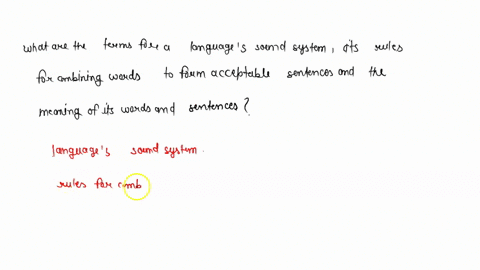 what are the terms for a language's sound system, its rules
for combining words to form acceptable sentences and the
meaning of its words and sentences?
language's sound system.
rules for comb